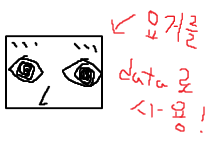 요거를
data로
사용!